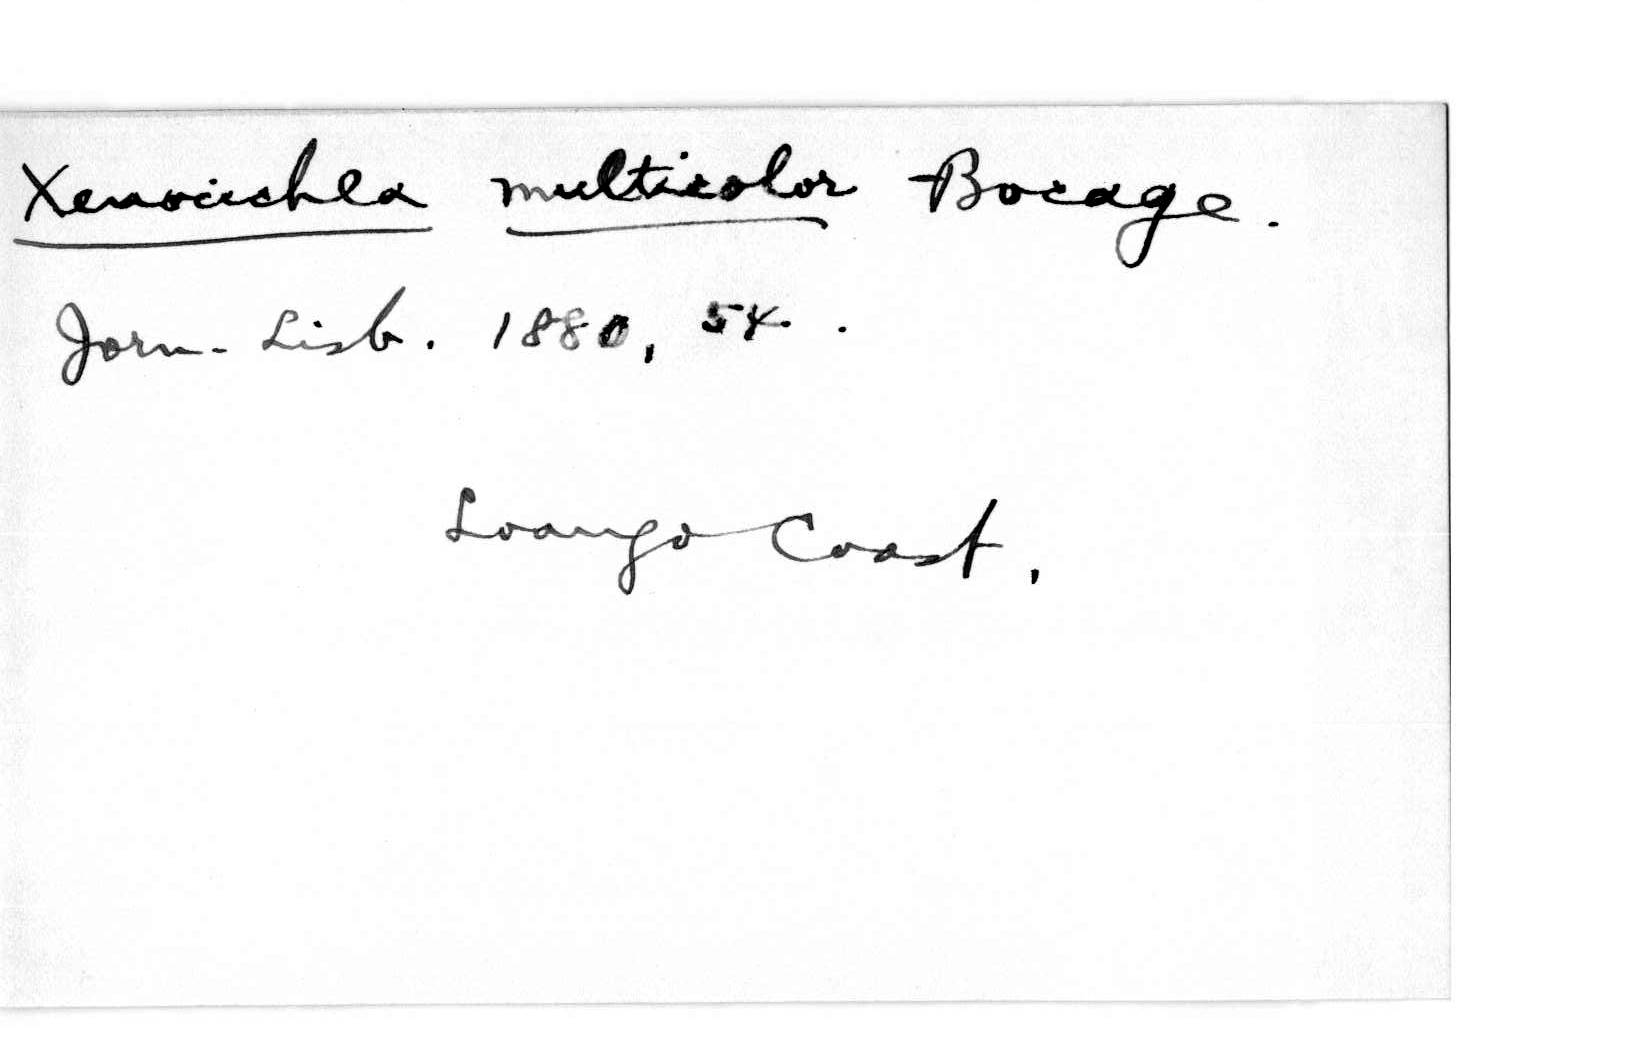 Xenocichla multicolor Bocage.
Jorn. Lisb. 1880, 54.
Loango Coast.